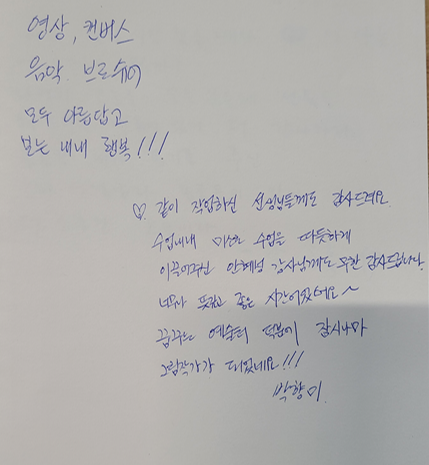 영상, 캔버스
음악, 브로슈어
모두 아름답고
보는 내내 행복!!!
♡ 같이 작업하신 선생님들께도 감사드려요
수업내내 미소로 수업을 따듯하게
이끌어주신 안혜님 강사님께도 무한 감사드립니다.
너무나 뜻깊고 좋은 시간이었어요~
꿈꾸는 예술터 덕분에 잠시나마
그림작가가 되었네요!!!
박향미.